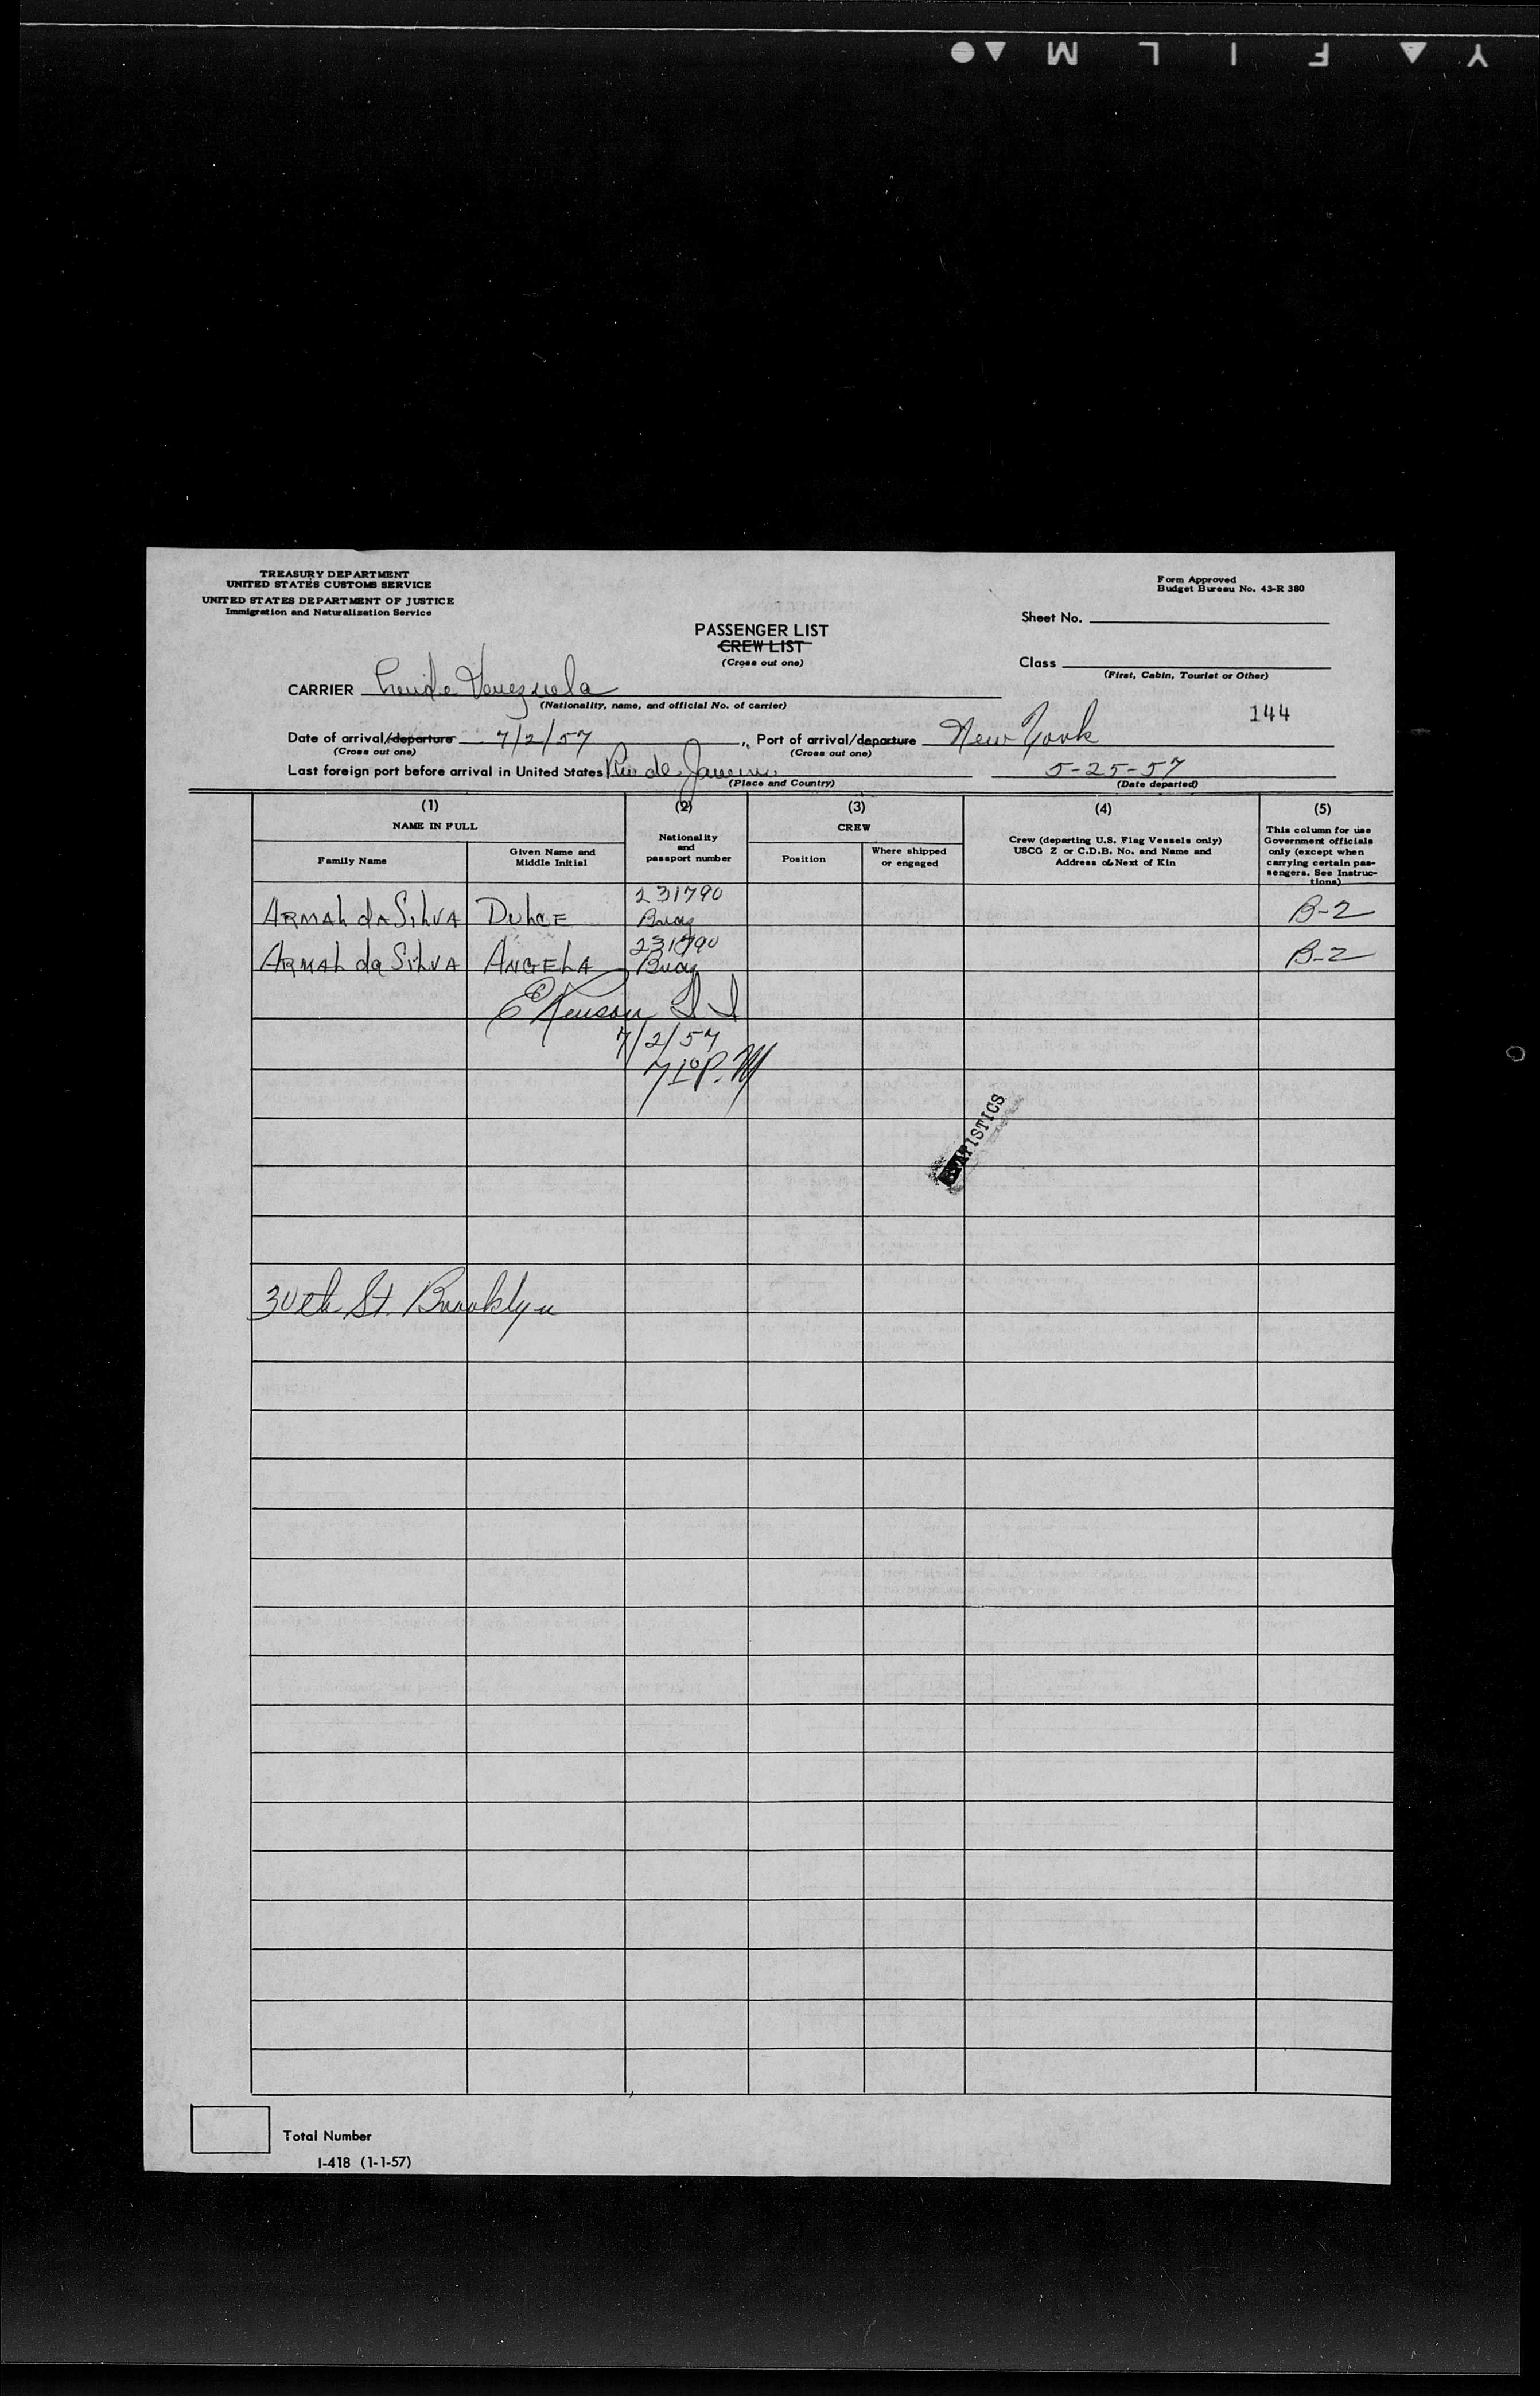 Y F I L M
TREASURY DEPARTMENT
UNITED STATES CUSTOMS SERVICE
UNITED STATES DEPARTMENT OF JUSTICE
Immigration and Naturalization Service
Form Approved
Budget Bureau No. 43-R 380
Sheet No.
PASSENGER LIST
CREW LIST
(Cross out one)
Class
(First, Cabin, Tourist or Other)
CARRIER Loide Venezuela
(Nationality, name, and official No. of carrier)
144
Date of arrival/departure 7/2/57 Port of arrival/departure New York
(Cross out one) (Cross out one)
Last foreign port before arrival in United States Rio de Janeiro 5-25-57
(Place and Country) (Date departed)
(1) (2) (3) (4) (5)
NAME IN FULL
Family Name
Given Name and
Middle Initial
Nationality
and
passport number
CREW
Position
Where shipped
or engaged
Crew (departing U.S. Flag Vessels only)
USCG Z or C.D.B. No. and Name and
Address of Next of Kin
This column for use
Government officials
only (except when
carrying certain pas-
sengers. See Instruc-
tions)
231790
ARMAL da SILVA DULCE Braz B-2
231790
ARMAL da SILVA ANGELA Braz B-2
7/2/57
7 10 P.M
STATISTICS
30th St. Brooklyn
Total Number
I-418 (1-1-57)